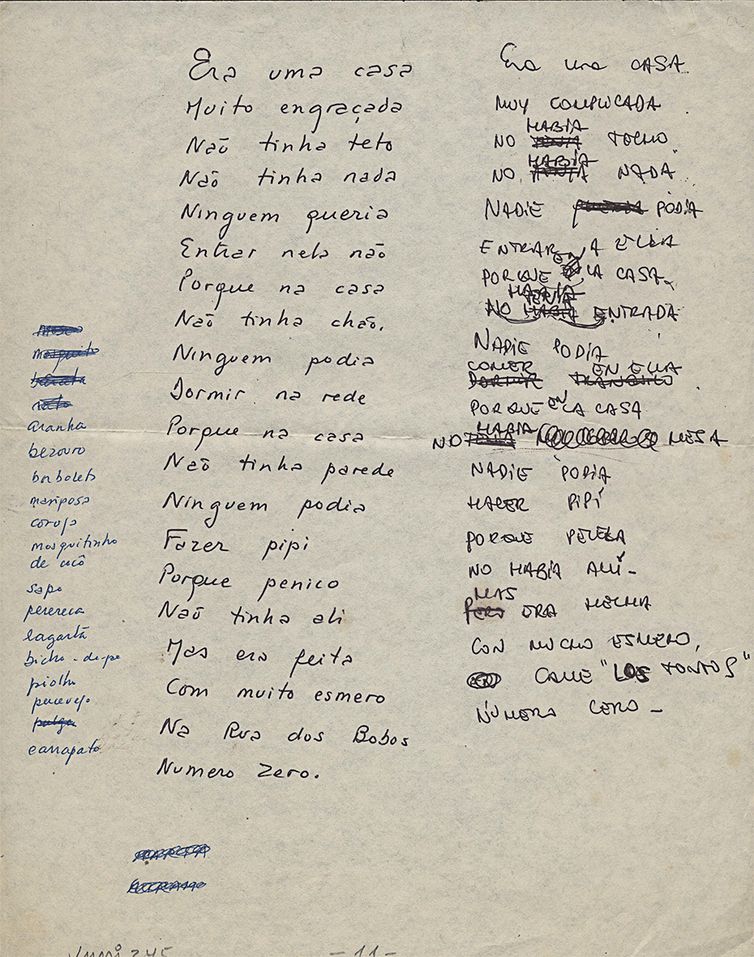 Era uma casa
Muito engraçada
Não tinha teto
Não tinha nada
Ninguem queria
Entrar nela não
Porque na casa
Não tinha chão.
Ninguem podia
Dormir na rede
Porque na casa
Não tinha parede
Ninguem podia
Fazer pipi
Porque penico
Não tinha ali
Mas era feita
Com muito esmero
Na Rua dos Bobos
Numero Zero.
Era una CASA
MUY COMPLICADA
NO HABÍA TECHO
NO HABÍA NADA
NADIE PODIA
ENTRAR A ELLA
PORQUE EN LA CASA
NO HABIA ENTRADA
NADIE PODÍA
COMER EN ELLA
PORQUE EN LA CASA
NO HABIA MESA
NADIE PODIA
HACER PIPÍ
PORQUE PELELA
NO HABÍA ALLÍ-
MAS ERA HECHA
CON MUCHO ESMERO,
CALLE "LOS TONTOS"
NÚMERO CERO-
mosquito
rato
aranha
bezouro
borboleta
mariposa
coruja
mosquitinho
de cocô
sapo
perereca
lagartã
bicho-de-pe
piolho
percevejo
pulga
carrapato
-11-